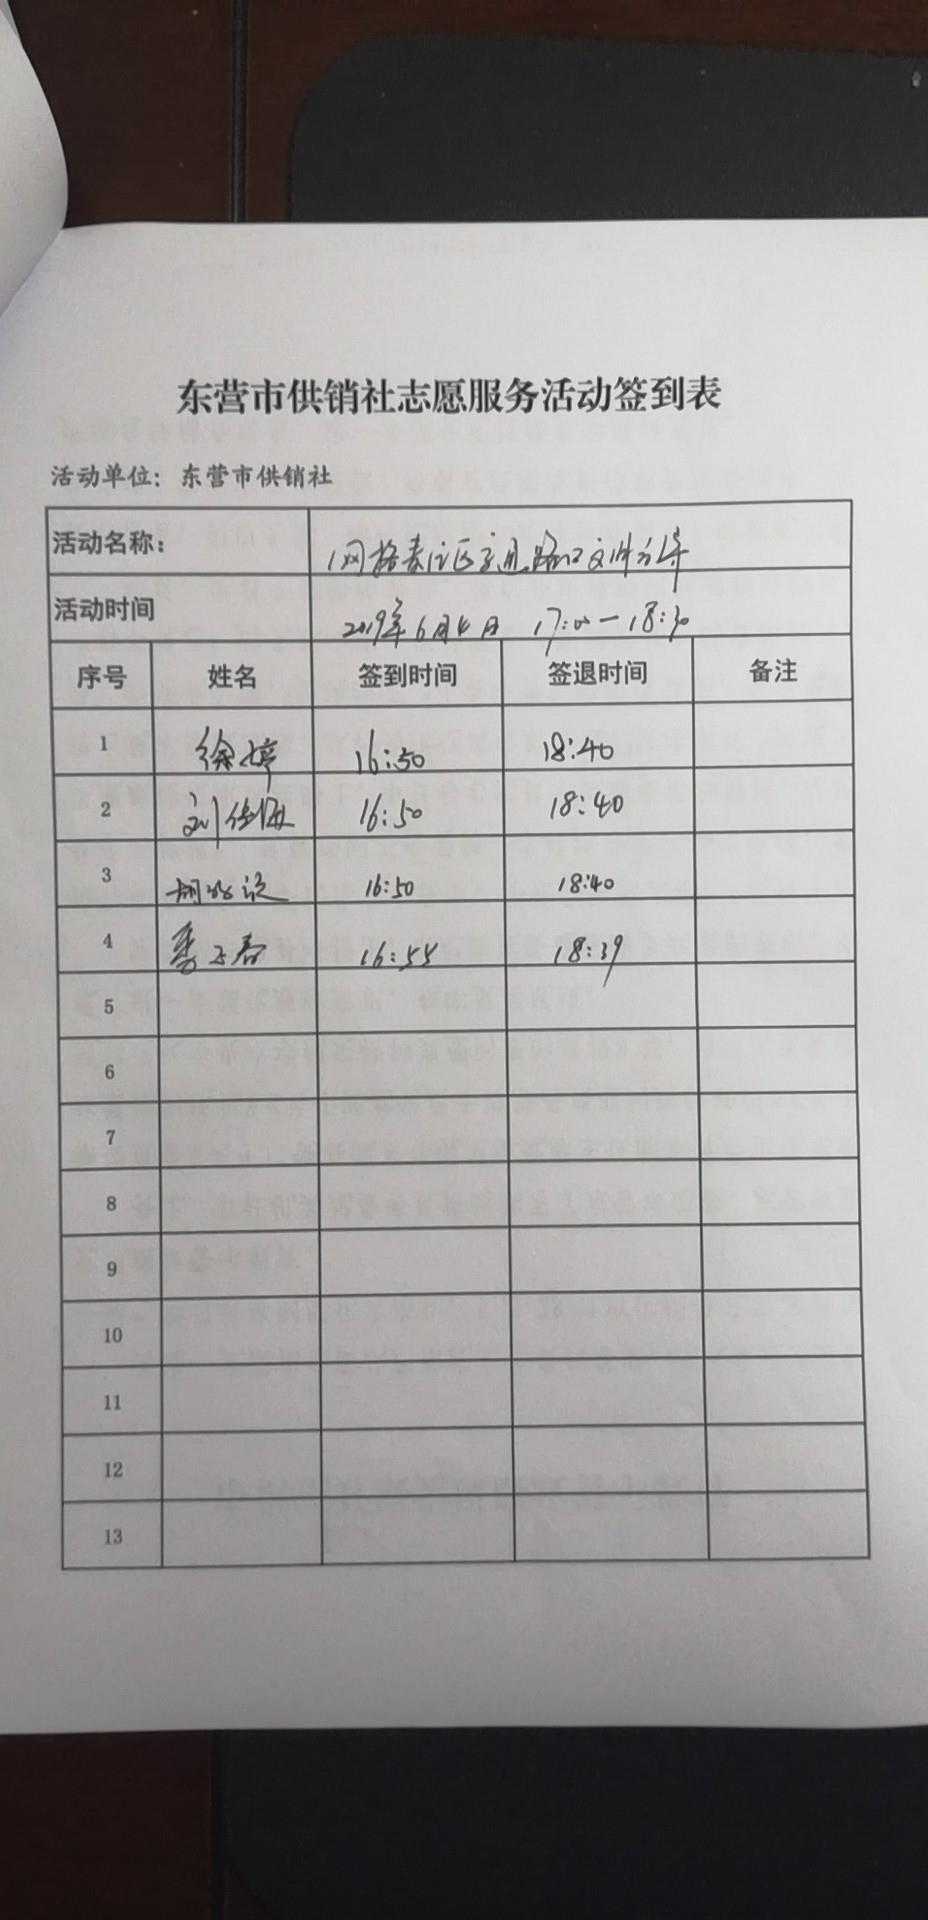 东营市供销社志愿服务活动签到表
活动单位：东营市供销社
活动名称： 网格责任区交通路口文明引导
活动时间 2019年6月4日 17:00—18:30
序号 姓名 签到时间 签退时间 备注
1 徐婷 16:50 18:40
2 刘 16:50 18:40
3 胡 16:50 18:40
4 季 春 16:55 18:39
5
6
7
8
9
10
11
12
13